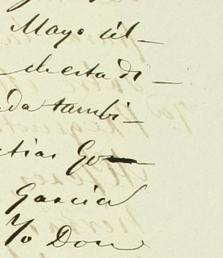 Mayo úl-
cha esta di-
da tambi-
tias Go-
Garcia
Yo Don